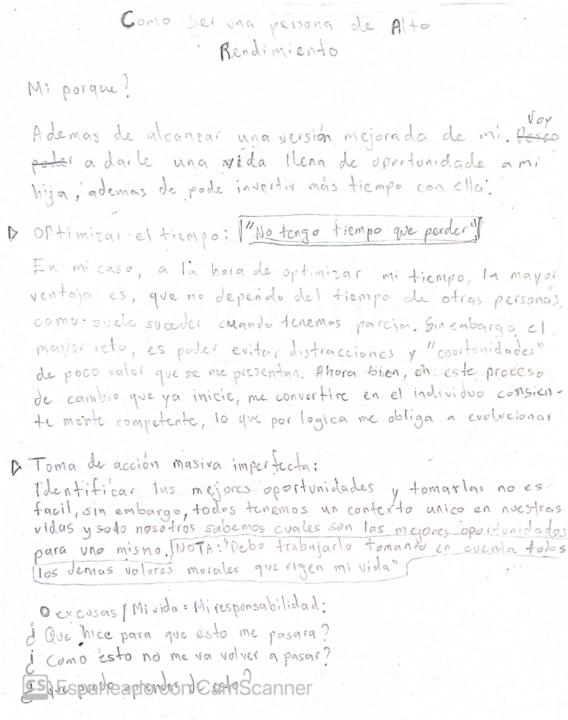 Como Ser una persona de Alto
Rendimiento
Mi porque?
Ademas de alcanzar una versión mejorada de mi. Voy
a darle una vida llena de oportunidade a mi
hija, ademas de pode invertir más tiempo con ella.
Optimizar el tiempo: "No tengo tiempo que perder"
En mi caso, a la hora de optimizar mi tiempo, la mayor
ventaja es, que no dependo del tiempo de otras personas,
como suele suceder cuando tenemos pareja. Sin embargo, el
mayor reto, es poder evitar distracciones y "oportunidades"
de poco valor que se me presentan. Ahora bien, en este proceso
de cambio que ya inicie, me convertire en el individuo consien-
te mente competente, lo que por logica me obliga a evolucionar
Toma de acción masiva imperfecta:
Identificar las mejores oportunidades y tomarlas no es
facil, sin embargo, todos tenemos un contexto unico en nuestras
vidas y solo nosotros sabemos cuales son las mejores oportunidades
para uno mismo. NOTA: "Debo trabajarlo tomando en cuenta todos
los demas valores morales que rigen mi vida"
0 excusas / Mi vida = Mi responsabilidad:
¿Que hice para que esto me pasara?
¿Como esto no me va volver a pasar?
¿Que puedo aprender de esto?
CS Escaneado con CamScanner